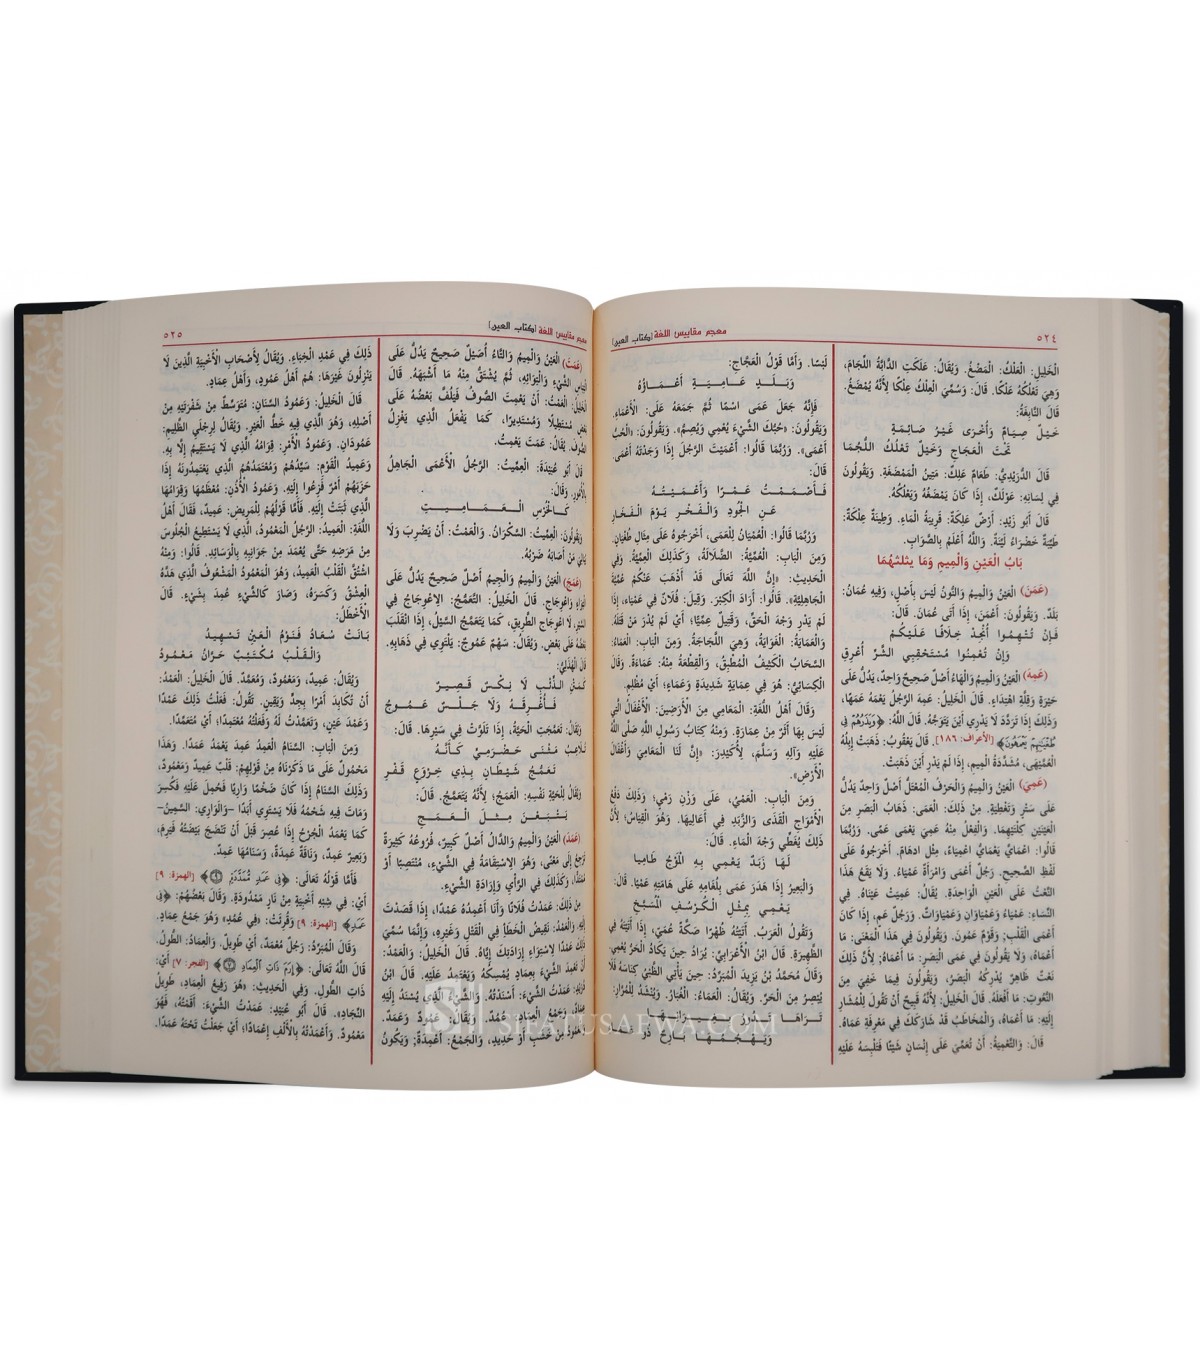 ٥٢٤
معجم مقاييس اللغة (كتاب العين)
الْخَلِيلِ: الْعَلْكُ: الْمَضْغُ. وَيُقَالُ: عَلَكَتِ الدَّابَّةُ اللِّجَامَ،
وَهِيَ تَعْلُكُهُ عَلْكًا. قَالَ: وَسُمِّيَ الْعِلْكُ عِلْكًا لِأَنَّهُ يُمْضَغُ.
قَالَ النَّابِغَةُ:
خَيْلٌ صِيَامٌ وَأُخْرَى غَيْرُ صَائِمَةٍ
تَحْتَ الْعَجَاجِ وَخَيْلٌ تَعْلُكُ اللُّجُمَا
قَالَ الدُّرَيْدِيُّ: طَعَامٌ عَلِكٌ: مَتِينُ الْمَمْضَغَةِ. وَيَقُولُونَ
فِي لِسَانِهِ: عَوْلَكٌ، إِذَا كَانَ يَمْضَغُهُ وَيَعْلُكُهُ.
قَالَ أَبُو زَيْدٍ: أَرْضٌ عَلِكَةٌ: قَرِيبَةُ الْمَاءِ. وَطِينَةٌ عَلِكَةٌ:
طَيِّبَةٌ خَضْرَاءُ لَيِّنَةٌ. وَاللَّهُ أَعْلَمُ بِالصَّوَابِ.
بَابُ الْعَيْنِ وَالْمِيمِ وَمَا يَثْلُثُهُمَا
(عَمَنَ) الْعَيْنُ وَالْمِيمُ وَالنُّونُ لَيْسَ بِأَصْلٍ، وَفِيهِ عُمَانُ:
بَلَدٌ. وَيَقُولُونَ: أَعْمَنَ، إِذَا أَتَى عُمَانَ. قَالَ:
فَإِنْ تُتْهِمُوا أُنْجِدْ خِلَافًا عَلَيْكُمُ
وَإِنْ تُعْمِنُوا مُسْتَحْقِبِي الشَّرِّ أُعْرِقِ
(عَمِهَ) الْعَيْنُ وَالْمِيمُ وَالْهَاءُ أَصْلٌ صَحِيحٌ وَاحِدٌ، يَدُلُّ عَلَى
حَيْرَةٍ وَقِلَّةِ اهْتِدَاءٍ. قَالَ الْخَلِيلُ: عَمِهَ الرَّجُلُ يَعْمَهُ عَمَهًا،
وَذَلِكَ إِذَا تَرَدَّدَ لَا يَدْرِي أَيْنَ يَتَوَجَّهُ. قَالَ اللَّهُ: ﴿وَيَذَرُهُمْ فِي
طُغْيَانِهِمْ يَعْمَهُونَ﴾ [الأعراف: ١٨٦]. قَالَ يَعْقُوبُ: ذَهَبَتْ إِبِلُهُ
الْعُمَّيْهَى، مُشَدَّدَةَ الْمِيمِ، إِذَا لَمْ يَدْرِ أَيْنَ ذَهَبَتْ.
(عَمِيَ) الْعَيْنُ وَالْمِيمُ وَالْحَرْفُ الْمُعْتَلُّ أَصْلٌ وَاحِدٌ يَدُلُّ
عَلَى سَتْرٍ وَتَغْطِيَةٍ. مِنْ ذَلِكَ: الْعَمَى: ذَهَابُ الْبَصَرِ مِنَ
الْعَيْنَيْنِ كِلْتَيْهِمَا. وَالْفِعْلُ مِنْهُ عَمِيَ يَعْمَى عَمًى. وَرُبَّمَا
قَالُوا: اعْمَايَّ يَعْمَايُّ اعْمِيَاءً، مِثْلِ ادْهَامَّ. أَخْرَجُوهُ عَلَى
لَفْظِ الصَّحِيحِ. رَجُلٌ أَعْمَى وَامْرَأَةٌ عَمْيَاءُ. وَلَا يَقَعُ هَذَا
النَّعْتُ عَلَى الْعَيْنِ الْوَاحِدَةِ. يُقَالُ: عَمِيَتْ عَيْنَاهُ. فِي
النِّسَاءِ: عَمْيَاءُ وَعَمْيَاوَانِ وَعَمْيَاوَاتٌ. وَرَجُلٌ عَمٍ، إِذَا كَانَ
أَعْمَى الْقَلْبِ; وَقَوْمٌ عَمُونَ. وَيَقُولُونَ فِي هَذَا الْمَعْنَى: مَا
أَعْمَاهُ، وَلَا يَقُولُونَ فِي عَمَى الْبَصَرِ: مَا أَعْمَاهُ; لِأَنَّ ذَلِكَ
نَعْتٌ ظَاهِرٌ يُدْرِكُهُ الْبَصَرُ، وَيَقُولُونَ فِيمَا خَفِيَ مِنَ
النُّعُوتِ: مَا أَفْعَلَهُ. قَالَ الْخَلِيلُ: لِأَنَّهُ قَبِيحٌ أَنْ تَقُولَ لِلْمُشَارِ
إِلَيْهِ: مَا أَعْمَاهُ، وَالْمُخَاطَبُ قَدْ شَارَكَكَ فِي مَعْرِفَةِ عَمَاهُ.
قَالَ: وَالتَّعْمِيَةُ: أَنْ تُعَمِّيَ عَلَى إِنْسَانٍ شَيْئًا فَتَلْبِسَهُ عَلَيْهِ
لَبْسًا. وَأَمَّا قَوْلُ الْعَجَّاجِ:
وَبَلَدٍ عَامِيَةٍ أَعْمَاؤُهُ
فَإِنَّهُ جَعَلَ عَمًى اسْمًا ثُمَّ جَمَعَهُ عَلَى: الْأَعْمَاءِ.
وَيَقُولُونَ: «حُبُّكَ الشَّيْءَ يُعْمِي وَيُصِمُّ». وَيَقُولُونَ: «الْحُبُّ
أَعْمَى». وَرُبَّمَا قَالُوا: أَعْمَيْتُ الرَّجُلَ إِذَا وَجَدْتَهُ أَعْمَى.
قَالَ:
فَأَصْمَمْتُ عَمْرًا وَأَعْمَيْتُهُ
عَنِ الْجُودِ وَالْفَخْرِ يَوْمَ الْفَخَارِ
وَرُبَّمَا قَالُوا: الْعُمْيَانُ لِلْعَمَى، أَخْرَجُوهُ عَلَى مِثَالِ طُغْيَانٍ.
وَمِنَ الْبَابِ: الْعُمِّيَّةُ: الضَّلَالَةُ، وَكَذَلِكَ الْعِمِّيَّةُ. وَفِي
الْحَدِيثِ: «إِنَّ اللَّهَ تَعَالَى قَدْ أَذْهَبَ عَنْكُمْ عُمِّيَّةَ
الْجَاهِلِيَّةِ». قَالُوا: أَرَادَ الْكِبْرَ. وَقِيلَ: فُلَانٌ فِي عَمْيَاءَ، إِذَا
لَمْ يَدْرِ وَجْهَ الْحَقِّ، وَقَتِيلُ عِمِّيًّا; أَيْ لَمْ يُدْرَ مَنْ قَتَلَهُ.
وَالْعَمَايَةُ: الْغَوَايَةُ، وَهِيَ اللَّجَاجَةُ. وَمِنَ الْبَابِ: الْعَمَاءُ:
السَّحَابُ الْكَثِيفُ الْمُطْبِقُ، وَالْقِطْعَةُ مِنْهُ: عَمَاءَةٌ. وَقَالَ
الْكِسَائِيُّ: هُوَ فِي عِمَايَةٍ شَدِيدَةٍ وَعَمَاءٍ; أَيْ مُظْلِمٍ.
وَقَالَ أَهْلُ اللُّغَةِ: الْمَعَامِي مِنَ الْأَرَضِينَ: الْأَغْفَالُ الَّتِي
لَيْسَ بِهَا أَثَرٌ مِنْ عِمَارَةٍ. وَمِنْهُ كِتَابُ رَسُولِ اللَّهِ صَلَّى اللَّهُ
عَلَيْهِ وَآلِهِ وَسَلَّمَ، لِأُكَيْدِرَ: «إِنَّ لَنَا الْمَعَامِيَ وَأَغْفَالَ
الْأَرْضِ».
وَمِنَ الْبَابِ: الْعَمْيُ، عَلَى وَزْنِ رَمْيٍ; وَذَلِكَ دَفْعُ
الْأَمْوَاجِ الْقَذَى وَالزَّبَدِ فِي أَعَالِيهَا. وَهُوَ الْقِيَاسُ; لِأَنَّ
ذَلِكَ يُغَطِّي وَجْهَ الْمَاءِ. قَالَ:
لَهَا زَبَدٌ يَعْمِي بِهِ الْمَوْجُ طَامِيَا
وَالْبَعِيرُ إِذَا هَدَرَ عَمَى بِلُغَامِهِ عَلَى هَامَتِهِ عَمْيًا. قَالَ:
يَعْمِي بِمِثْلِ الْكُرْسُفِ الْمُسَبَّخِ
وَتَقُولُ الْعَرَبُ: أَتَيْتُهُ ظُهْرًا صَكَّةَ عُمَيٍّ، إِذَا أَتَيْتَهُ فِي
الظَّهِيرَةِ. قَالَ ابْنُ الْأَعْرَابِيِّ: يُرَادُ حِينَ يَكَادُ الْحَرُّ يُعْمِي.
وَقَالَ مُحَمَّدُ بْنُ يَزِيدَ الْمُبَرِّدُ: حِينَ يَأْتِي الظَّبْيُ كِنَاسَهُ فَلَا
يُبْصِرُ مِنَ الْحَرِّ. وَيُقَالُ: الْعَمَاءُ: الْغُبَارُ. وَيُنْشَدُ لِلْمَرَّارِ:
تَرَاهَا تَدُورُ بِغِيرَانِهَا
وَيَهْجُمُهَا بَارِحٌ ذُو عَمَاءِ
معجم مقاييس اللغة (كتاب العين)
٥٢٥
(عَمَتَ) الْعَيْنُ وَالْمِيمُ وَالتَّاءُ أُصَيْلٌ صَحِيحٌ يَدُلُّ عَلَى
الْتِبَاسِ الشَّيْءِ وَالْتِوَائِهِ، ثُمَّ يُشْتَقُّ مِنْهُ مَا أَشْبَهَهُ. قَالَ
الْخَلِيلُ: الْعَمْتُ: أَنْ يَعْمِتَ الصُّوفَ فَيَلُفَّ بَعْضَهُ عَلَى
بَعْضٍ مُسْتَطِيلًا وَمُسْتَدِيرًا، كَمَا يَفْعَلُ الَّذِي يَغْزِلُ
الصُّوفَ. يُقَالُ: عَمَتَ يَعْمِتُ.
قَالَ أَبُو عُبَيْدَةَ: الْعِمِّيتُ: الرَّجُلُ الْأَعْمَى الْجَاهِلُ
بِالْأُمُورِ. وَقَالَ:
كَالْخُرْسِ الْعَمَامِيتِ
وَيَقُولُونَ: الْعِمِّيتُ: السَّكْرَانُ. وَالْعَمْتُ: أَنْ يَضْرِبَ وَلَا
يُبَالِيَ مَنْ أَصَابَهُ ضَرْبُهُ.
(عَمَجَ) الْعَيْنُ وَالْمِيمُ وَالْجِيمُ أَصْلٌ صَحِيحٌ يَدُلُّ عَلَى
الْتِوَاءٍ وَاعْوِجَاجٍ. قَالَ الْخَلِيلُ: التَّعَمُّجُ: الِاعْوِجَاجُ فِي
السَّيْرِ، لَا اعْوِجَاجِ الطَّرِيقِ، كَمَا يَتَعَمَّجُ السَّيْلُ، إِذَا انْقَلَبَ
بَعْضُهُ عَلَى بَعْضٍ. وَيُقَالُ: سَهْمٌ عَمُوجٌ: يَلْتَوِي فِي ذَهَابِهِ.
قَالَ الْهُذَلِيُّ:
كَمَتْنِ الذِّئْبِ لَا نِكْسٌ قَصِيرٌ
فَأُغْرِقَهُ وَلَا جَلْسٌ عَمُوجُ
وَيُقَالُ: تَعَمَّجَتِ الْحَيَّةُ، إِذَا تَلَوَّتْ فِي سَيْرِهَا. قَالَ:
تُلَاعِبُ مَثْنَى حَضْرَمِيٍّ كَأَنَّهُ
تَعَمُّجُ شَيْطَانٍ بِذِي خِرْوَعٍ قَفْرِ
وَيُقَالُ لِلْحَيَّةِ نَفْسِهِ: الْعَمَجُ; لِأَنَّهُ يَتَعَمَّجُ. قَالَ:
يَتْبَعْنَ مِثْلَ الْعَمَجِ
(عَمَدَ) الْعَيْنُ وَالْمِيمُ وَالدَّالُ أَصْلٌ كَبِيرٌ، فُرُوعُهُ كَثِيرَةٌ
تَرْجِعُ إِلَى مَعْنًى، وَهُوَ الِاسْتِقَامَةُ فِي الشَّيْءِ، مُنْتَصِبًا أَوْ
مُمْتَدًّا، وَكَذَلِكَ فِي الرَّأْيِ وَإِرَادَةِ الشَّيْءِ.
مِنْ ذَلِكَ: عَمَدْتُ فُلَانًا وَأَنَا أَعْمِدُهُ عَمْدًا، إِذَا قَصَدْتَ
إِلَيْهِ. وَالْعَمْدُ: نَقِيضُ الْخَطَأِ فِي الْقَتْلِ وَغَيْرِهِ، وَإِنَّمَا سُمِّيَ
ذَلِكَ عَمْدًا لِاسْتِوَاءِ إِرَادَتِكَ إِيَّاهُ. قَالَ الْخَلِيلُ: وَالْعَمْدُ:
أَنْ تَعْمِدَ الشَّيْءَ بِعِمَادٍ يُمْسِكُهُ وَيَعْتَمِدُ عَلَيْهِ. قَالَ ابْنُ
دُرَيْدٍ: عَمَدْتُ الشَّيْءَ: أَسْنَدْتُهُ. وَالشَّيْءُ الَّذِي يُسْنَدُ إِلَيْهِ
عِمَادٌ، وَجَمْعُ الْعِمَادِ: عُمُدٌ. وَيُقَالُ: عَمُودٌ وَعَمَدٌ.
وَالْعَمُودُ مِنْ خَشَبٍ أَوْ حَدِيدٍ، وَالْجَمْعُ: أَعْمِدَةٌ; وَيَكُونُ
ذَلِكَ فِي عَمَدِ الْخِبَاءِ. وَيُقَالُ لِأَصْحَابِ الْأَخْبِيَةِ الَّذِينَ لَا
يَنْزِلُونَ غَيْرَهَا: هُمْ أَهْلُ عَمُودٍ، وَأَهْلُ عِمَادٍ.
قَالَ الْخَلِيلُ: وَعَمُودُ السِّنَانِ: مُتَوَسِّطٌ مِنْ شَفْرَتَيْهِ مِنْ
أَصْلِهِ، وَهُوَ الَّذِي فِيهِ خَطُّ الْعَيْرِ. وَيُقَالُ لِرِجْلَيِ الظَّلِيمِ:
عَمُودَانِ. وَعَمُودُ الْأَمْرِ: قِوَامُهُ الَّذِي لَا يَسْتَقِيمُ إِلَّا بِهِ.
وَعَمِيدُ الْقَوْمِ: سَيِّدُهُمْ وَمُعْتَمَدُهُمُ الَّذِي يَعْتَمِدُونَهُ إِذَا
حَزَبَهُمْ أَمْرٌ فَزِعُوا إِلَيْهِ. وَعَمُودُ الْأُذُنِ: مُعْظَمُهَا وَقِوَامُهَا
الَّذِي ثَبَتَتْ إِلَيْهِ. فَأَمَّا قَوْلُهُمْ لِلْمَرِيضِ: عَمِيدٌ، فَقَالَ أَهْلُ
اللُّغَةِ: الْعَمِيدُ: الرَّجُلُ الْمَعْمُودُ، الَّذِي لَا يَسْتَطِيعُ الْجُلُوسَ
مِنْ مَرَضِهِ حَتَّى يُعْمَدَ مِنْ جَوَانِبِهِ بِالْوَسَائِدِ. قَالُوا: وَمِنْهُ
اشْتُقَّ الْقَلْبُ الْعَمِيدُ، وَهُوَ الْمَعْمُودُ الْمَشْعُوفُ الَّذِي هَدَّهُ
الْعِشْقُ وَكَسَرَهُ، وَصَارَ كَالشَّيْءِ عُمِدَ بِشَيْءٍ. قَالَ
الْأَخْطَلُ:
بَانَتْ سُعَادُ فَنَوْمُ الْعَيْنِ تَسْهِيدُ
وَالْقَلْبُ مُكْتَئِبٌ حَرَّانُ مَعْمُودُ
وَيُقَالُ: عَمِيدٌ، وَمَعْمُودٌ، وَمُعَمَّدٌ. قَالَ الْخَلِيلُ: الْعَمْدُ:
أَنْ تُكَابِدَ أَمْرًا بِجِدٍّ وَيَقِينٍ. تَقُولُ: فَعَلْتُ ذَلِكَ عَمْدًا
وَعَمْدَ عَيْنٍ، وَتَعَمَّدْتُ لَهُ وَفَعَلْتُهُ مُعْتَمِدًا; أَيْ مُتَعَمِّدًا.
وَمِنَ الْبَابِ: السَّنَامُ الْعَمِدُ عَمِدَ يَعْمَدُ عَمَدًا. وَهَذَا
مَحْمُولٌ عَلَى مَا ذَكَرْنَاهُ مِنْ قَوْلِهِمْ: قَلْبٌ عَمِيدٌ وَمَعْمُودٌ،
وَذَلِكَ السَّنَامُ إِذَا كَانَ ضَخْمًا وَارِيًا فَحُمِلَ عَلَيْهِ فَكُسِرَ
وَمَاتَ فِيهِ شَحْمُهُ فَلَا يَسْتَوِي أَبَدًا -وَالْوَارِي: السَّمِينُ-
كَمَا يَعْمَدُ الْجُرْحُ إِذَا عُصِرَ قَبْلَ أَنْ تَنْضَجَ بَيْضَتُهُ فَيَرِمَ،
وَبَعِيرٌ عَمِدٌ، وَنَاقَةٌ عَمِدَةٌ، وَسَنَامُهَا عَمِدٌ.
فَأَمَّا قَوْلُهُ تَعَالَى: ﴿فِي عَمَدٍ مُمَدَّدَةٍ ۝٩﴾ [الهمزة: ٩]
أَيْ: فِي شِبْهِ أَخْبِيَةٍ مِنْ نَارٍ مَمْدُودَةٍ. وَقَالَ بَعْضُهُمْ: ﴿فِي
عَمَدٍ﴾ [الهمزة: ٩] وَقُرِئَتْ: «فِي عُمُدٍ» وَهُوَ جَمْعُ عِمَادٍ.
وَقَالَ الْمُبَرِّدُ: رَجُلٌ مُعْمَدٌ، أَيْ طَوِيلٌ. وَالْعِمَادُ: الطُّولُ.
قَالَ اللَّهُ تَعَالَى: ﴿إِرَمَ ذَاتِ الْعِمَادِ ۝٧﴾ [الفجر: ٧] أَيْ:
ذَاتِ الطُّولِ. وَفِي الْحَدِيثِ: «هُوَ رَفِيعُ الْعِمَادِ، طَوِيلُ
النِّجَادِ». قَالَ أَبُو عُبَيْدٍ: عَمَدْتُ الشَّيْءَ: أَقَمْتُهُ، فَهُوَ
مَعْمُودٌ. وَأَعْمَدْتُهُ بِالْأَلِفِ إِعْمَادًا; أَيْ جَعَلْتُ تَحْتَهُ عَمَدًا.
SIFATUSAFWA.COM